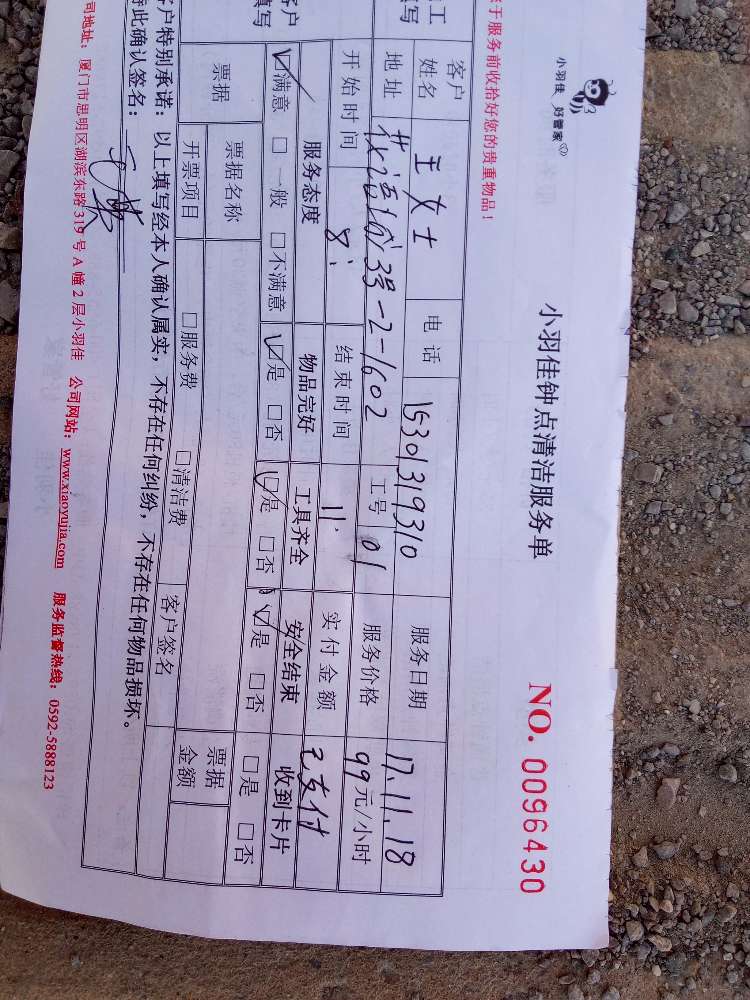 小羽佳 好管家
小羽佳钟点清洁服务单
NO. 0096430
于服务前收拾好您的贵重物品！
工
写
客户姓名 王女士 电话 15301319310 服务日期 17.11.18
地址 3号-2-1602 工号 01 服务价格 99元/小时
开始时间 8: 结束时间 11: 实付金额 已支付
户
填写
服务态度 物品完好 工具齐全 安全结束 收到卡片
☑满意 □一般 □不满意 ☑是 □否 ☑是 □否 ☑是 □否 □是 □否
票据 票据名称 票据金额
开票项目 □服务费 □清洁费 客户签名
客户特别承诺：以上填写经本人确认属实，不存在任何纠纷，不存在任何物品损坏。
特此确认签名：
司地址：厦门市思明区湖滨东路319号A幢2层小羽佳 公司网站：www.xiaoyujia.com 服务监督热线：0592-5888123